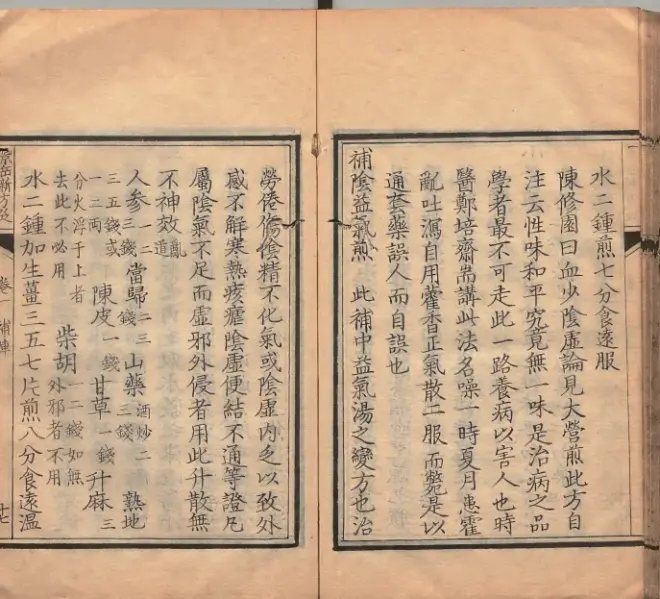 水二鍾煎七分食遠服
陳修園曰血少陰虛論見大營煎此方自
注云性味和平究竟無一味是治病之品
學者最不可走此一路養病以害人也時
醫鄭培齋耑講此法名噪一時夏月患霍
亂吐瀉自用藿香正氣散二服而斃是以
通套藥誤人而自誤也
補陰益氣煎 此補中益氣湯之變方也治
勞倦傷陰精不化氣或陰虛內乏以致外
感不解寒熱痎瘧陰虛便結不通等證凡
屬陰氣不足而虛邪外侵者用此升散無
不神效亂道
人參一二三錢 當歸二三錢 山藥酒炒二三錢 熟地
三五錢或一二兩 陳皮一錢 甘草一錢 升麻三
分火浮于上者去此不必用 柴胡一二錢如無外邪者不用
水二鍾加生薑三五七片煎八分食遠溫
景岳新方砭 卷 補陣 十七